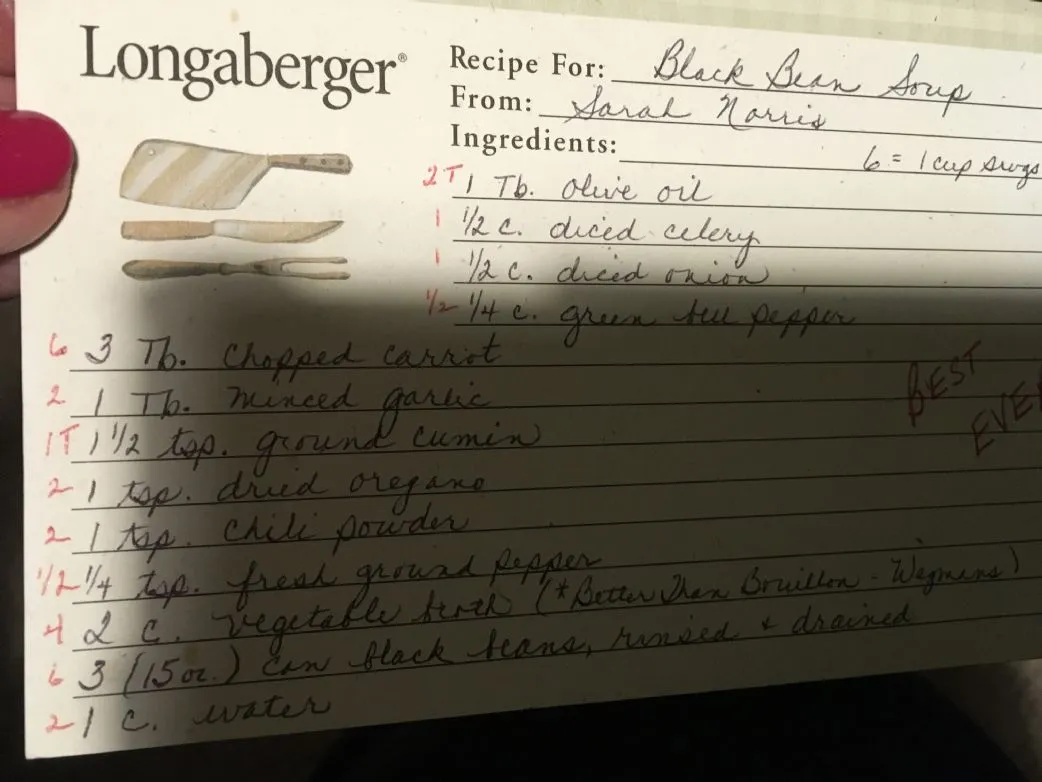 Longaberger®
Recipe For: Black Bean Soup
From: Sarah Norris
Ingredients:
6 = 1 cup svgs
2T 1 Tb. olive oil
1 1/2 c. diced celery
1 1/2 c. diced onion
1/2 1/4 c. green bell pepper
6 3 Tb. chopped carrot
2 1 Tb. minced garlic
1T 1 1/2 tsp. ground cumin
2 1 tsp. dried oregano
2 1 tsp. chili powder
1/2 1/4 tsp. fresh ground pepper
4 2 c. vegetable broth (*Better Than Bouillon - Wegmans)
6 3 (15 oz.) can black beans, rinsed & drained
2 1 c. water
BEST
EVE